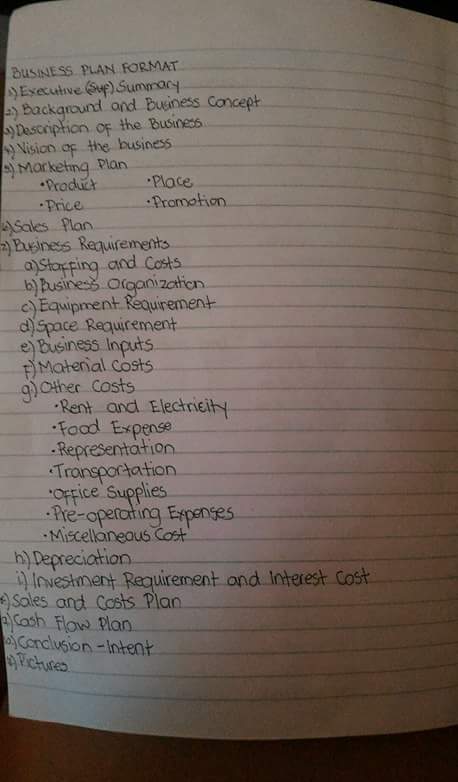 BUSINESS PLAN FORMAT
1) Executive (Sup) Summary
2) Background and Business Concept
3) Description of the Business
4) Vision of the business
5) Marketing Plan
•Product •Place
•Price •Promotion
6) Sales Plan
7) Business Requirements
a) Staffing and Costs
b) Business Organization
c) Equipment Requirement
d) Space Requirement
e) Business Inputs
f) Material Costs
g) Other Costs
•Rent and Electricity
•Food Expense
•Representation
•Transportation
•Office Supplies
•Pre-operating Expenses
•Miscellaneous Cost
h) Depreciation
i) Investment Requirement and Interest Cost
8) Sales and Costs Plan
9) Cash Flow Plan
10) Conclusion - Intent
11) Pictures